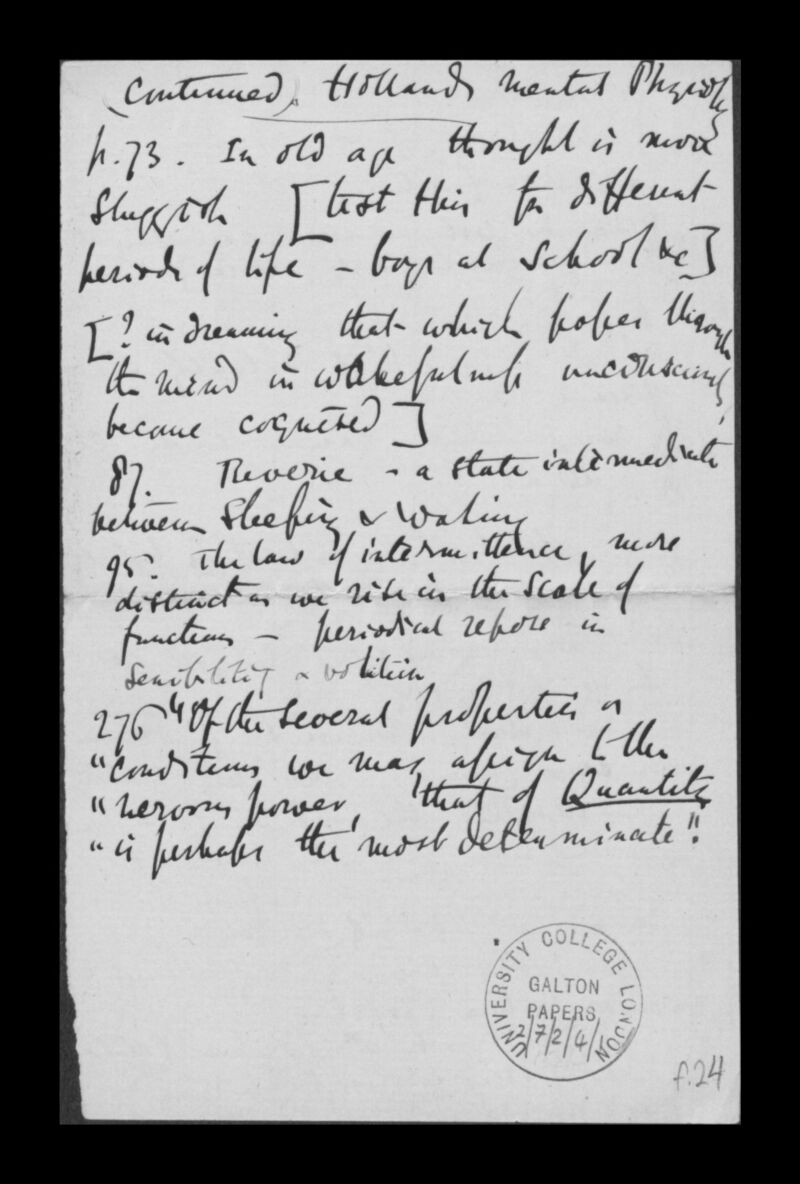 (continued). Hollands mental Physiology
p.73. In old age thought is more
sluggish [test this for different
periods of life – boys at school &c]
[? in dreaming that which passes through
the mind in wakefulness unconsciously,
become cognised]
87. Reverie - a state intermediate
between sleeping & waking
95. The law of intermittence, more
distinct as we rise in the scale of
functions – periodical repose in
sensibility & volition
276 "Of the several properties or
"conditions we may assign to the
"nervous power, that of Quantity
"is perhaps the most determinate".
UNIVERSITY COLLEGE LONDON
GALTON
PAPERS
2/7/2/4/1
f.24